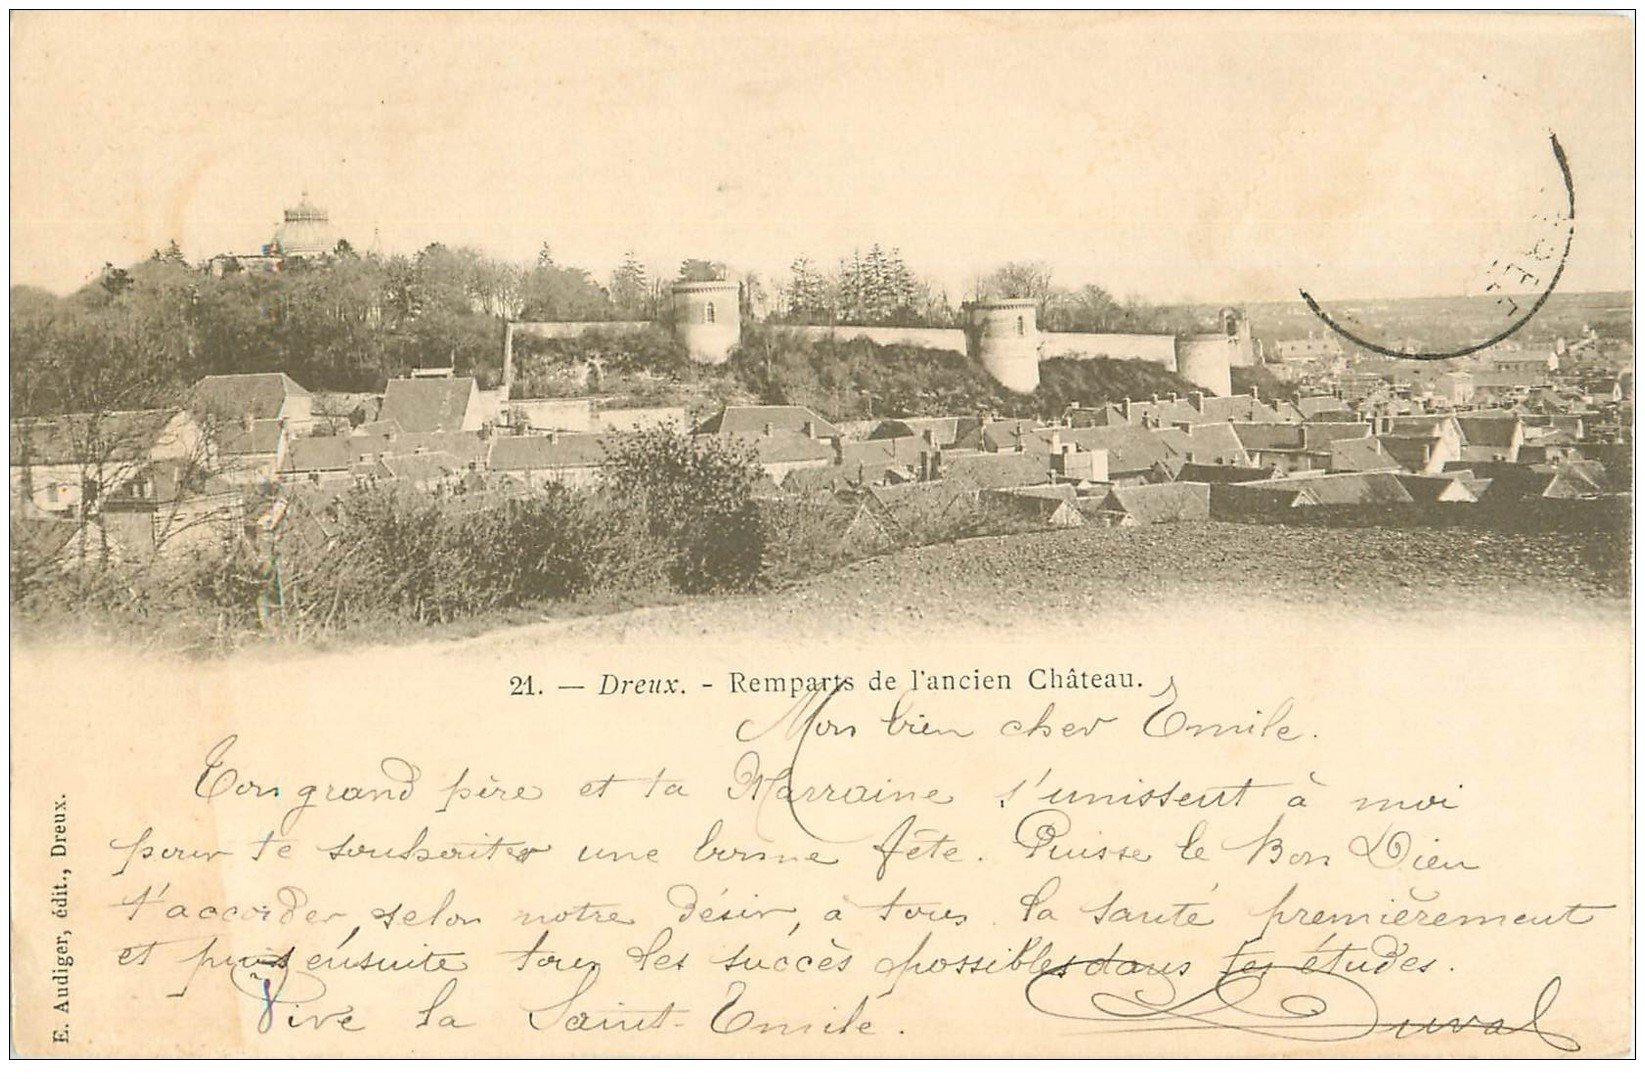 21. — Dreux. - Remparts de l'ancien Château.
Mon bien cher Emile.
Ton grand père et ta Marraine s'unissent à moi
pour te souhaiter une bonne fête. Puisse le Bon Dieu
t'accorder, selon notre désir, à tous la santé premièrement
et puis ensuite tous les succès possibles dans tes études.
Vive la Saint-Emile.
Duval
E. Audiger, édit., Dreux.